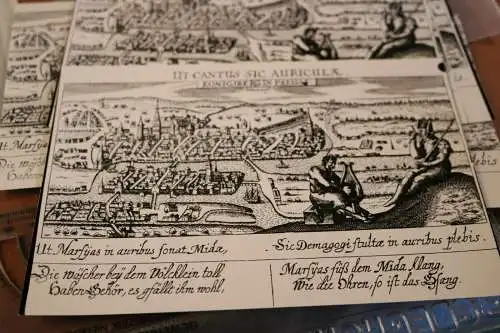 UT CANTUS SIC AURICULÆ
KONIGSBERG IN PREUSSEN
Ut Marsyas in auribus sonat Midæ,
Sic Demagogi stultæ in auribus plebis.
Die Wäscher bey dem Völcklein toll
Haben Gehör, es gfälle ihm wohl,
Marsyas süß dem Mida klang,
Wie die Ohren, so ist das Gsang.
Ut Marsyas
Die Wäsch
Haben G
plebis